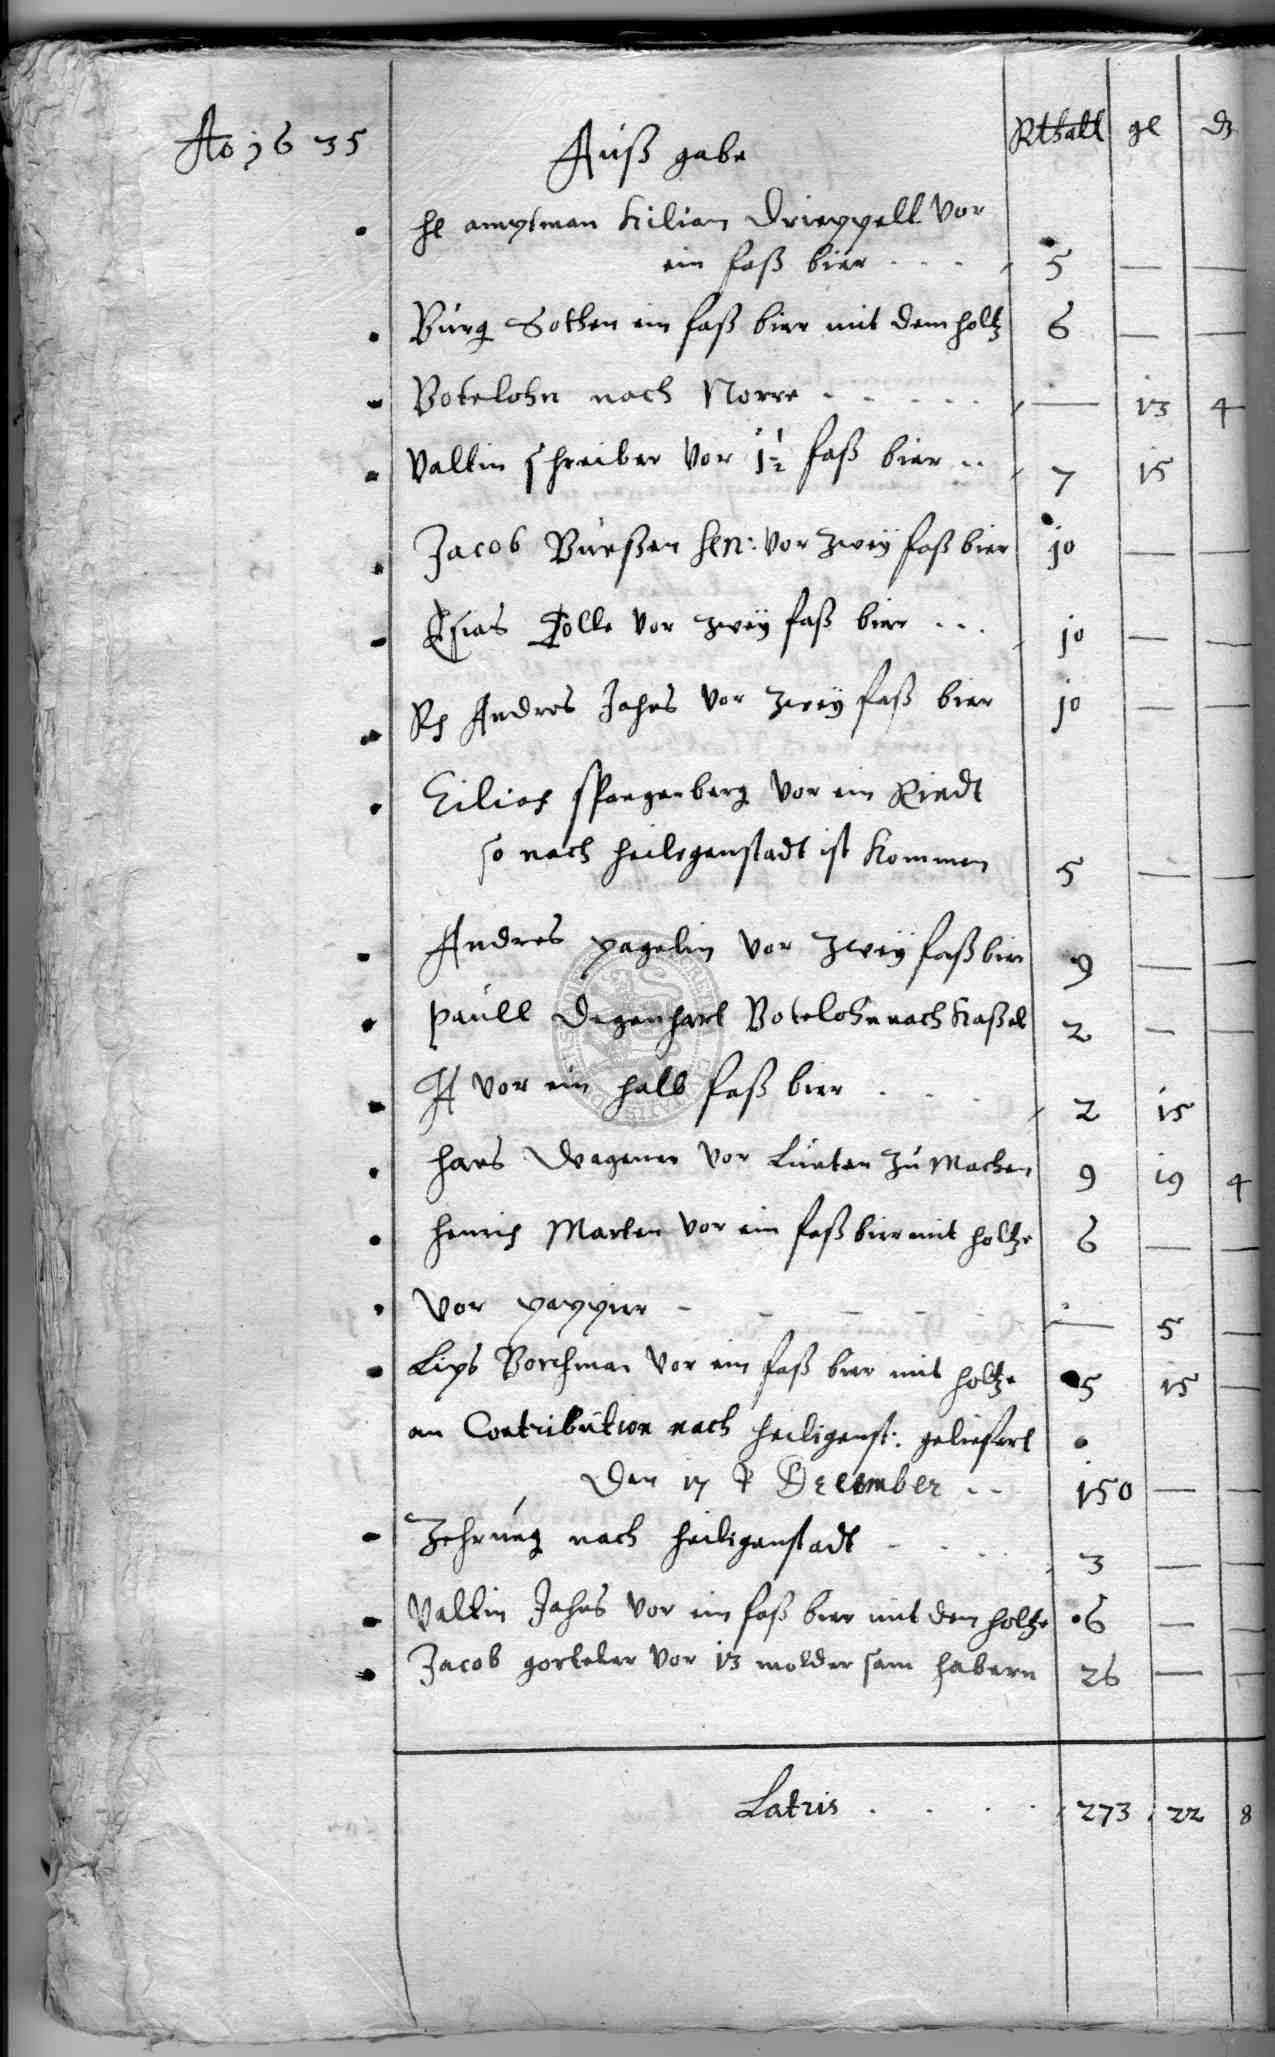 Ao 1635 Auß gabe Rthall gl d
hl amptman Kilian Drieppell vor
ein faß bier 5 — —
Burg Sothen ein faß bier mit dem holtz 6 — —
Botelohn nach Norre — 13 4
Valtin schreiber vor 1½ faß bier 7 15
Jacob Burßen sen: vor zweÿ faß bier 10 — —
Esias Tolle vor zweÿ faß bier 10 — —
Andres Jahns vor zweÿ faß bier 10 — —
Cilias spangenberg vor ein Rindt
so nach heiligenstadt ist kommen 5 — —
Andres pagelin vor zweÿ faß bier 9 — —
paull Degenhart Botelohn nach Kaßel 2 — —
vor ein halb faß bier 2 15
hans Wagener vor Lunten zu Machen 9 19 4
henrich Marten vor ein faß bier mit holtze 6 — —
Vor pappier — 5 —
Lips Borchman vor ein faß bier mit holtze 5 15 —
an Contribution nach heiligenst: geliefert
Den 17 December 150 — —
Zehrung nach heiligenstadt 3 — —
Valtin Jahns vor ein faß bier mit dem holtze 6 — —
Jacob gorteler vor 13 molder sam habern 26 — —
Latris 273 22 8